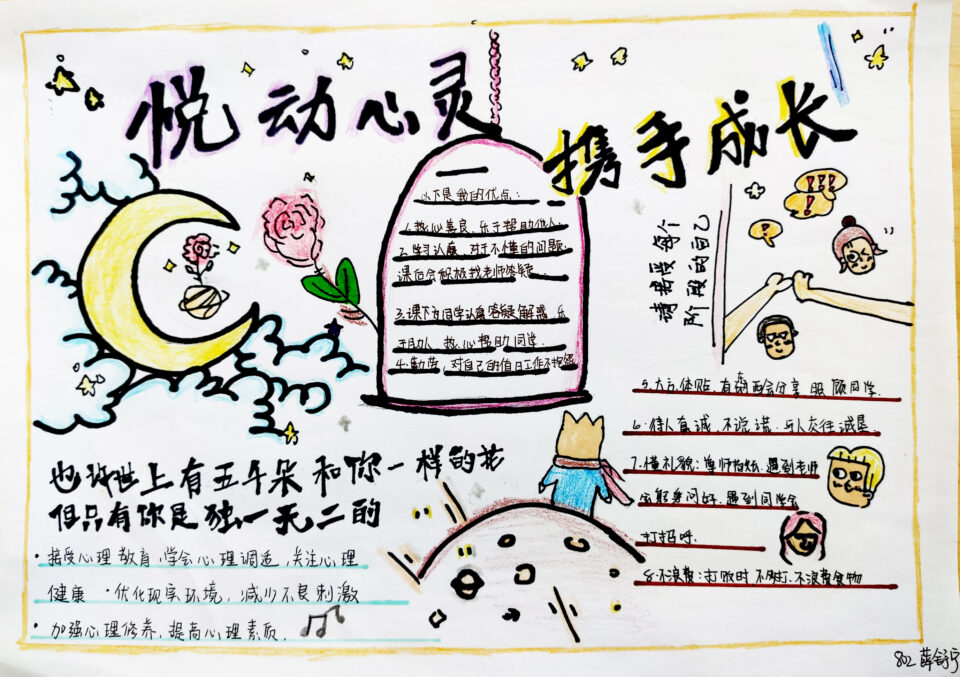 悦动心灵
携手成长
以下是我的优点：
1.热心善良，乐于帮助他人
2.学习认真，对于不懂的问题
课后会积极找老师答疑
3.课下为同学认真答疑解惑，乐
于助人，热心帮助同学．
4.勤劳，对自己的值日工作不拖
接受每个
阶段的自己
5.大方体贴，有东西会分享，照顾同学．
6.待人真诚，不说谎，与人交往诚
7.懂礼貌：尊师，遇到老师
会问好，遇到同学会
打招呼．
8.不浪费：打饭时不多打，不浪费食物
也许世上有五千朵和你一样的花
但只有你是独一无二的
·接受心理教育，学会心理调适，关注心理
健康 ·优化现实环境，减少不良刺激
·加强心理修养，提高心理素质．
802 薛舒宁